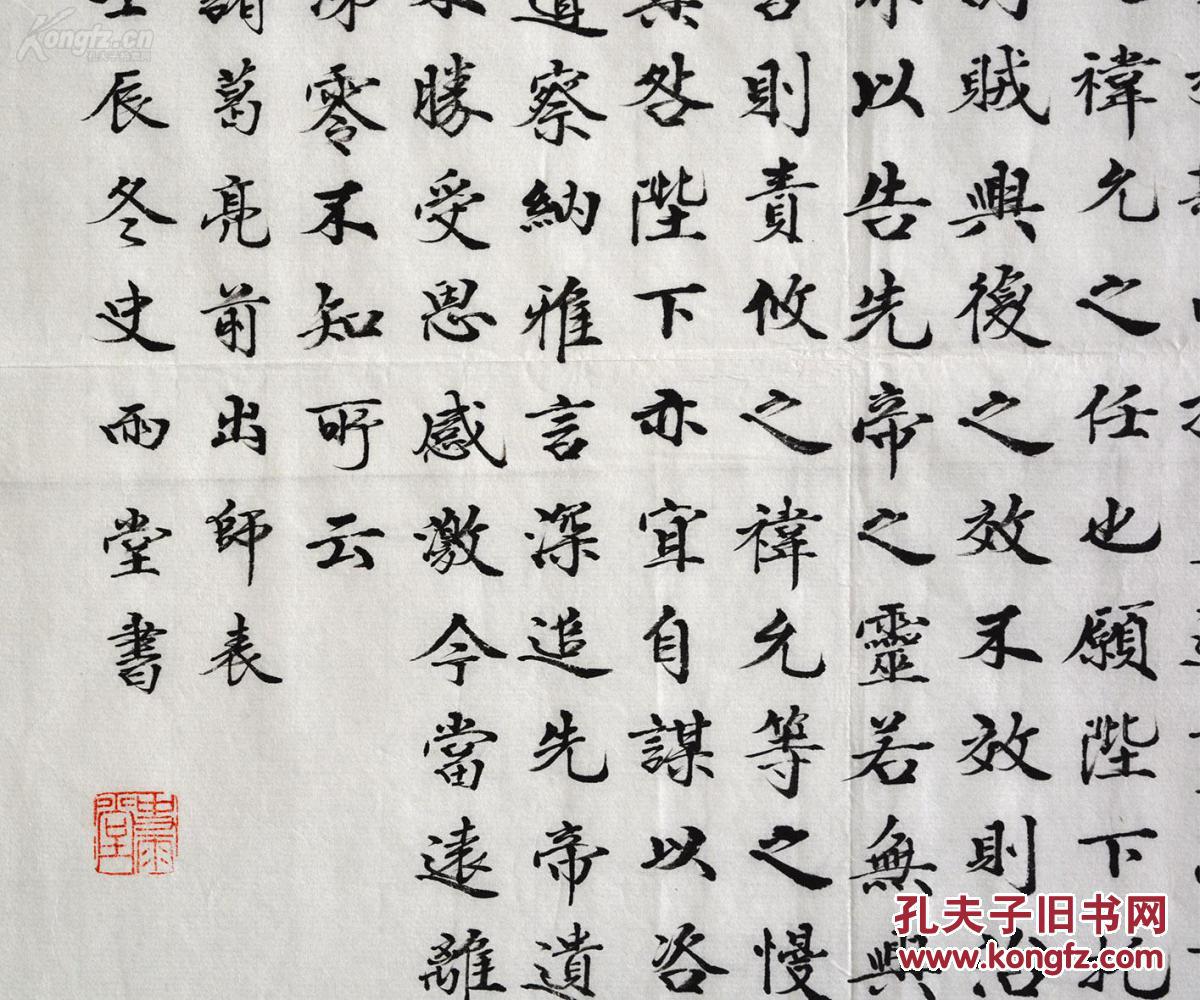 禕允之任也願陛下托
賊興復之效不效則治
以告先帝之靈若無興
則責攸之禕允等之慢
咎陛下亦宜自謀以咨
察納雅言深追先帝遺
勝受恩感激今當遠離
零不知所云
葛亮前出師表
辰冬史雨堂書
Kongfz.cn
孔夫子旧书网
www.kongfz.com